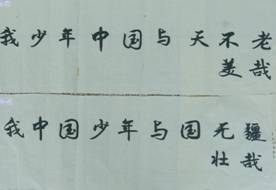 我少年中国与天不老
美哉
我中国少年与国无疆
壮哉